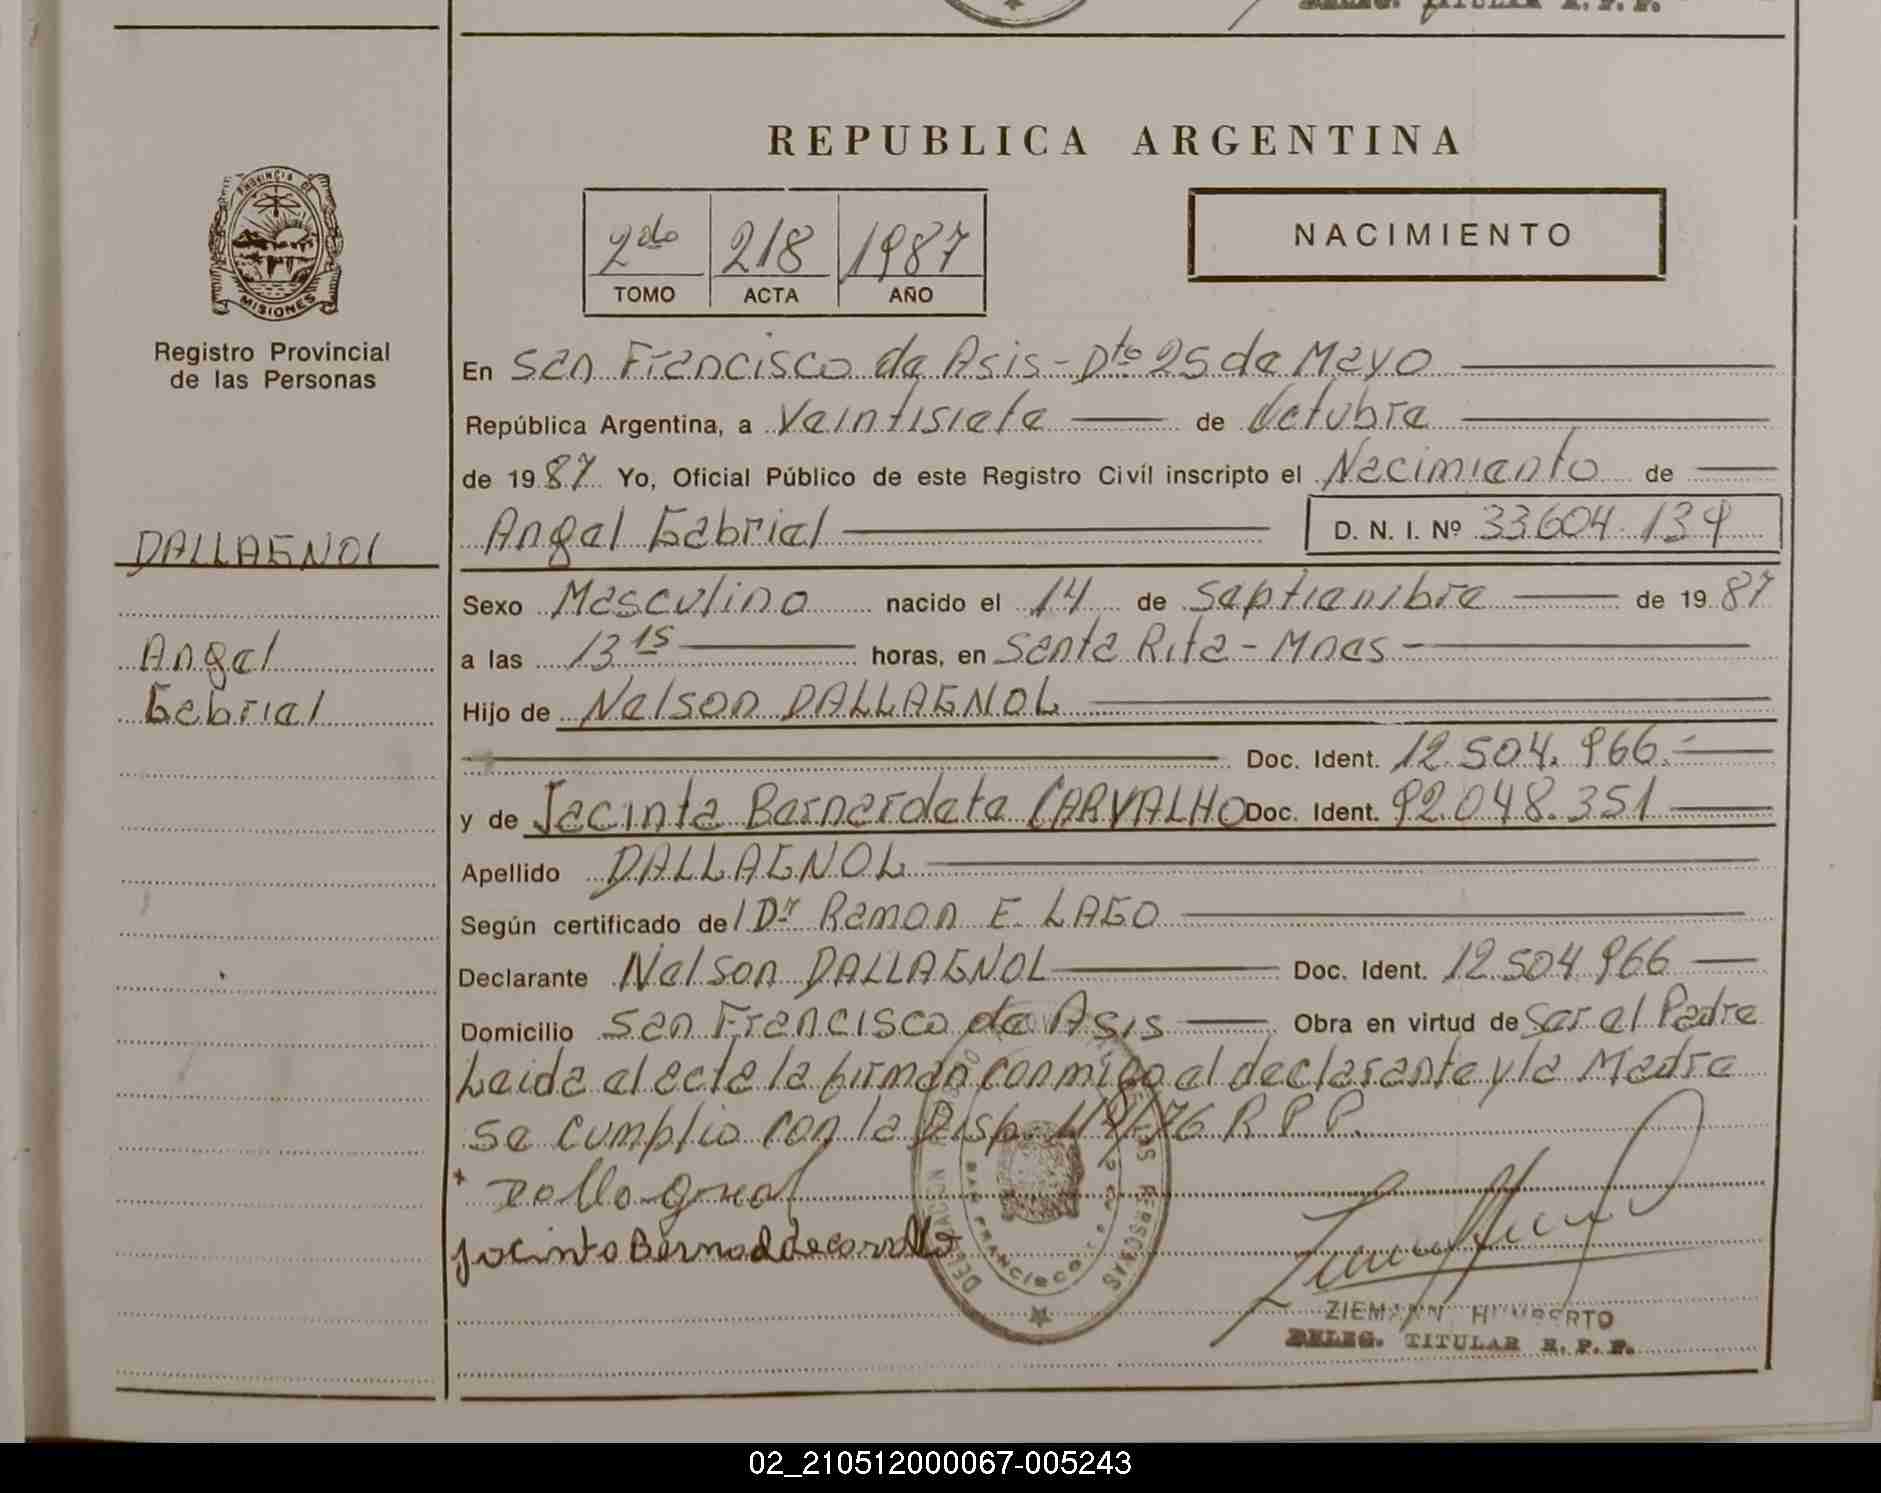 DELEG. TITULAR R. P. P.
REPUBLICA ARGENTINA
PROVINCIA DE
MISIONES
Registro Provincial
de las Personas
2do 218 1987
TOMO ACTA AÑO
NACIMIENTO
En San Francisco de Asis - Dto 25 de Mayo
República Argentina, a Veintisiete de Octubre
de 1987 Yo, Oficial Público de este Registro Civíl inscripto el Nacimiento de
Angel Gabriel D. N. I. Nº 33.604.134
DALLAGNOL
Sexo Masculino nacido el 14 de Septiembre de 1987
Angel
a las 13 15 horas, en Santa Rita - Mnes -
Gabriel
Hijo de Nelson DALLAGNOL
Doc. Ident. 12.504.966.-
y de Jacinta Bernardete CARVALHO Doc. Ident. 92.048.351
Apellido DALLAGNOL
Según certificado del Dr Ramon E. LAGO
Declarante Nelson DALLAGNOL Doc. Ident. 12.504.966
Domicilio San Francisco de Asis Obra en virtud de Ser el Padre
Leida el acta la firman conmigo el declarante y la Madre
se cumplio con la Disp. /76 R P P.
ZIEMANN HUMBERTO
DELEG. TITULAR R. P. P.
02_210512000067-005243